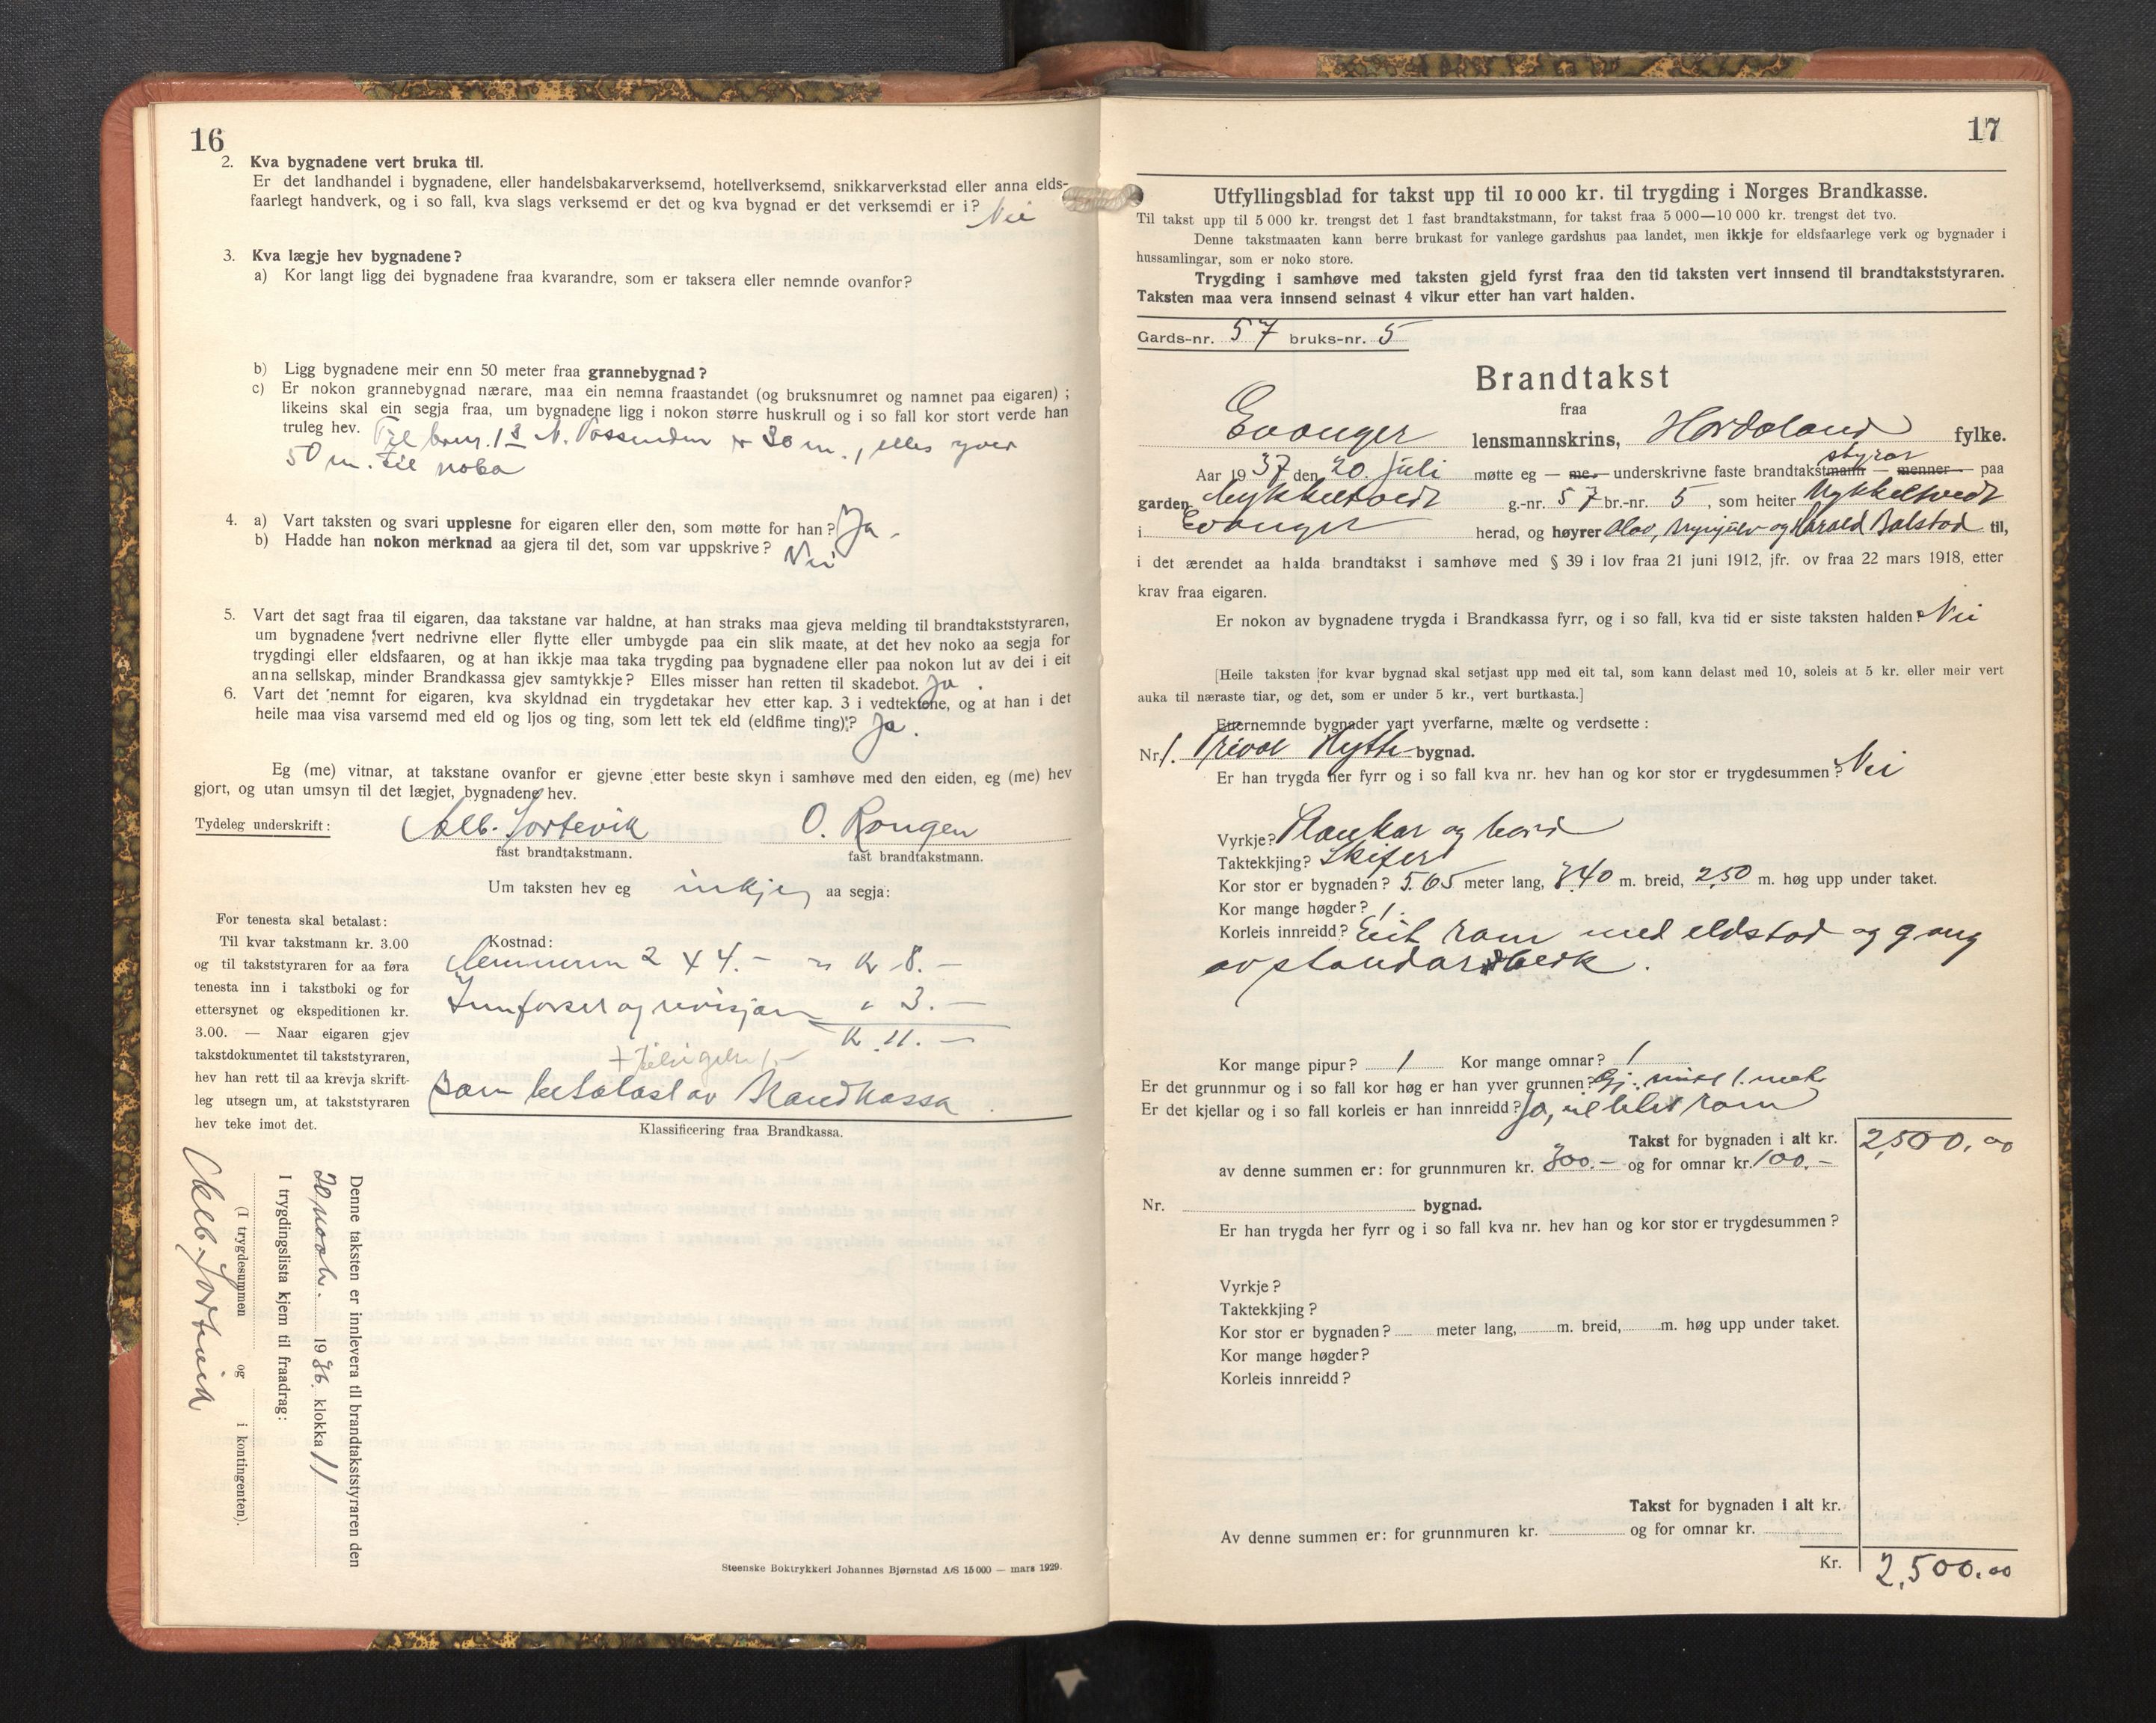 16
2. Kva bygnadene vert bruka til.
Er det landhandel i bygnadene, eller handelsbakarverksemd, hotellverksemd, snikkarverkstad eller anna elds-
faarlegt handverk, og i so fall, kva slags verksemd er det og kva bygnad er det verksemdi er i? Nei
3. Kva lægje hev bygnadene?
a) Kor langt ligg dei bygnadene fraa kvarandre, som er taksera eller nemnde ovanfor?
b) Ligg bygnadene meir enn 50 meter fraa grannebygnad?
c) Er nokon grannebygnad nærare, maa ein nemna fraastandet (og bruksnumret og namnet paa eigaren) ;
likeins skal ein segja fraa, um bygnadene ligg i nokon større huskrull og i so fall kor stort verde han
truleg hev. Til 30 m., elles yver
50 m. til noko
4. a) Vart taksten og svari upplesne for eigaren eller den, som møtte for han? Ja.
b) Hadde han nokon merknad aa gjera til det, som var uppskrive? Nei
5. Vart det sagt fraa til eigaren, daa takstane var haldne, at han straks maa gjeva melding til brandtakststyraren,
um bygnadene vert nedrivne eller flytte eller umbygde paa ein slik maate, at det hev noko aa segja for
trygdingi eller eldsfaaren, og at han ikkje maa taka trygding paa bygnadene eller paa nokon lut av dei i eit
anna sellskap, minder Brandkassa gjev samtykkje? Elles misser han retten til skadebot. Ja.
6. Vart det nemnt for eigaren, kva skyldnad ein trygdetakar hev etter kap. 3 i vedtektene, og at han i det
heile maa visa varsemd med eld og ljos og ting, som lett tek eld (eldfime ting)? Ja.
Eg (me) vitnar, at takstane ovanfor er gjevne etter beste skyn i samhøve med den eiden, eg (me) hev
gjort, og utan umsyn til det lægjet, bygnadene hev.
Tydeleg underskrift: Alb. Jortevik O. Rongen
fast brandtakstmann. fast brandtakstmann.
Um taksten hev eg inkje aa segja:
For tenesta skal betalast:
Til kvar takstmann kr. 3.00
og til takststyraren for aa føra
tenesta inn i takstboki og for
ettersynet og ekspeditionen kr.
3.00. — Naar eigaren gjev
takstdokumentet til takststyraren,
hev han rett til aa krevja skrift-
leg utsegn um, at takststyraren
hev teke imot det.
Kostnad:
2 x 4.- = Kr 8.-
og revisjon " 3.-
Kr. 11.-
som betalast av Brandkassa
Klassificering fraa Brandkassa.
Denne taksten er innlevera til brandtakststyraren den
20 1936. klokka 11
I trygdingslista kjem til fraadrag:
(I trygdesummen og i kontingenten).
Alb. Jortevik
Steenske Boktrykkeri Johannes Bjørnstad A/S 15 000 — mars 1929.
17
Utfyllingsblad for takst upp til 10 000 kr. til trygding i Norges Brandkasse.
Til takst upp til 5 000 kr. trengst det 1 fast brandtakstmann, for takst fraa 5 000—10 000 kr. trengst det tvo.
Denne takstmaaten kann berre brukast for vanlege gardshus paa landet, men ikkje for eldsfaarlege verk og bygnader i
hussamlingar, som er noko store.
Trygding i samhøve med taksten gjeld fyrst fraa den tid taksten vert innsend til brandtakststyraren.
Taksten maa vera innsend seinast 4 vikur etter han vart halden.
Gards-nr. 57 bruks-nr. 5
Brandtakst
fraa
Evanger lensmannskrins, Hordaland fylke.
Aar 1937 den 20. juli møtte eg — me — underskrivne faste brandtakstmann styrar — menner — paa
garden Mykkeltvedt g.-nr. 57 br.-nr. 5, som heiter Mykkeltvedt
i Evanger herad, og høyrer Olav, Brynjulv og Harald Balstad til,
i det ærendet aa halda brandtakst i samhøve med § 39 i lov fraa 21 juni 1912, jfr. ov fraa 22 mars 1918, etter
krav fraa eigaren.
Er nokon av bygnadene trygda i Brandkassa fyrr, og i so fall, kva tid er siste taksten halden? Nei
[Heile taksten for kvar bygnad skal setjast upp med eit tal, som kann delast med 10, soleis at 5 kr. eller meir vert
auka til næraste tiar, og det, som er under 5 kr., vert burtkasta.]
Etternemnde bygnader vart yverfarne, mælte og verdsette :
Nr. 1. Privat Hytte bygnad.
Er han trygda her fyrr og i so fall kva nr. hev han og kor stor er trygdesummen? Nei
Vyrkje? Plankar og bord
Taktekkjing? Skifer
Kor stor er bygnaden? 5.65 meter lang, 3.40 m. breid, 2,50 m. høg upp under taket.
Kor mange høgder? 1.
Korleis innreidd? Eit rom med eldstad og gang
av standardverk.
Kor mange pipur? 1 Kor mange omnar? 1
Er det grunnmur og i so fall kor høg er han yver grunnen? Gj. 1. met.
Er det kjellar og i so fall korleis er han innreidd? Ja, eit lite rom
Takst for bygnaden i alt kr. 2,500.00
av denne summen er: for grunnmuren kr. 300.- og for omnar kr. 100.-
Nr. bygnad.
Er han trygda her fyrr og i so fall kva nr. hev han og kor stor er trygdesummen ?
Vyrkje ?
Taktekkjing ?
Kor stor er bygnaden? meter lang, m. breid, m. høg upp under taket.
Kor mange høgder?
Korleis innreidd ?
Takst for bygnaden i alt kr.
Av denne summen er: for grunnmuren kr. og for omnar kr.
Kr. 2,500.00